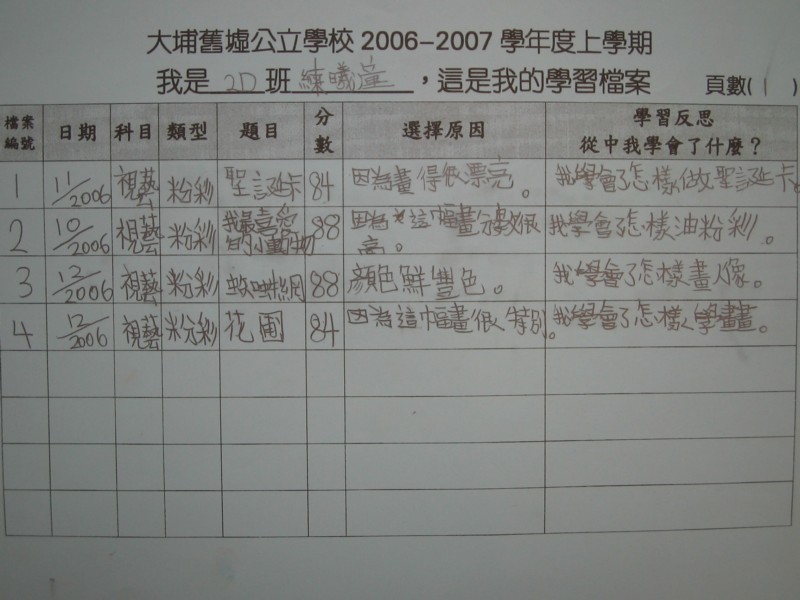 大埔舊墟公立學校 2006-2007 學年度上學期
我是 2D 班 練曦 ，這是我的學習檔案 頁數( 1 )
檔案編號 日期 科目 類型 題目 分數 選擇原因 學習反思 從中我學會了什麼？
1 11/2006 視藝 粉彩 聖誕卡 84 因為畫得很漂亮。 我學會了怎樣做聖誕卡。
2 10/2006 視藝 粉彩 我最喜愛的小動物 88 因為這幅畫分數很高。 我學會了怎樣油粉彩。
3 12/2006 視藝 粉彩 網 88 顏色鮮豐色。 我學會了怎樣畫人像。
4 12/2006 視藝 粉彩 花圃 84 因為這幅畫很特別。 我學會了怎樣學畫畫。